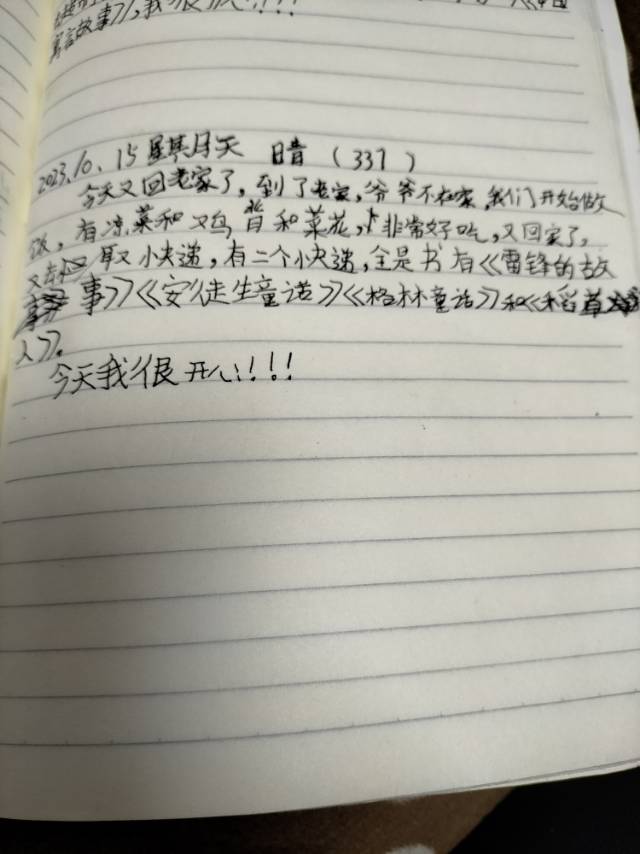 寓言故事》,我很开心!!!
2023.10.15 星期天 晴 (337)
今天又回老家了,到了老家,爷爷不在家,我们开始做
饭,有凉菜和鸡背和菜花,非常好吃,又回家了,
又去取小快递,有二个小快递,全是书有《雷锋的故
事》《安徒生童话》《格林童话》和《稻草
人》。
今天我很开心!!!!